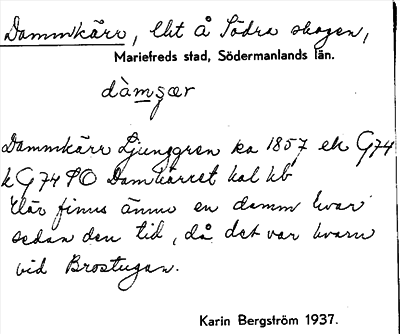 Dammkärr, lht å Södra skogen,
Mariefreds stad, Södermanlands län.
dàmʂær
Dammkärr Ljunggren ka 1857 ek G74
k G74 90 Damkärret hal kb
Där finns ännu en damm kvar
sedan den tid, då det var kvarn
vid Brostugan.
Karin Bergström 1937.